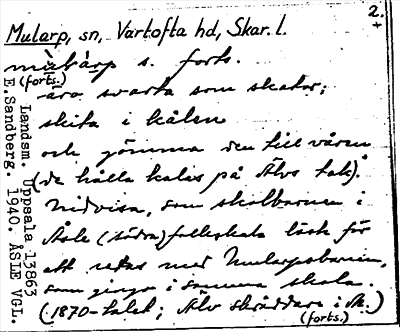 2.
Mularp, sn, Vartofta hd, Skar. l.
mùlàrp s. forts.
(forts.)
äro svarta som skator;
skita i kålen
och gömma den till våren
(de hålla kalas på Älvs tak).
Nidvisa, som skolbarnen i
Åsle (södra) folkskola läst för
att retas med Mularpsbarnen,
som gingo i samma skola.
(1870-talet; Älv skräddare i M.)
(forts.)
Landsm. Uppsala 13863
E. Sandberg. 1940. ÅSLE VGL.